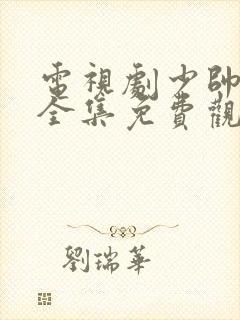 電視劇少帥
全集免費觀
劉瑞華